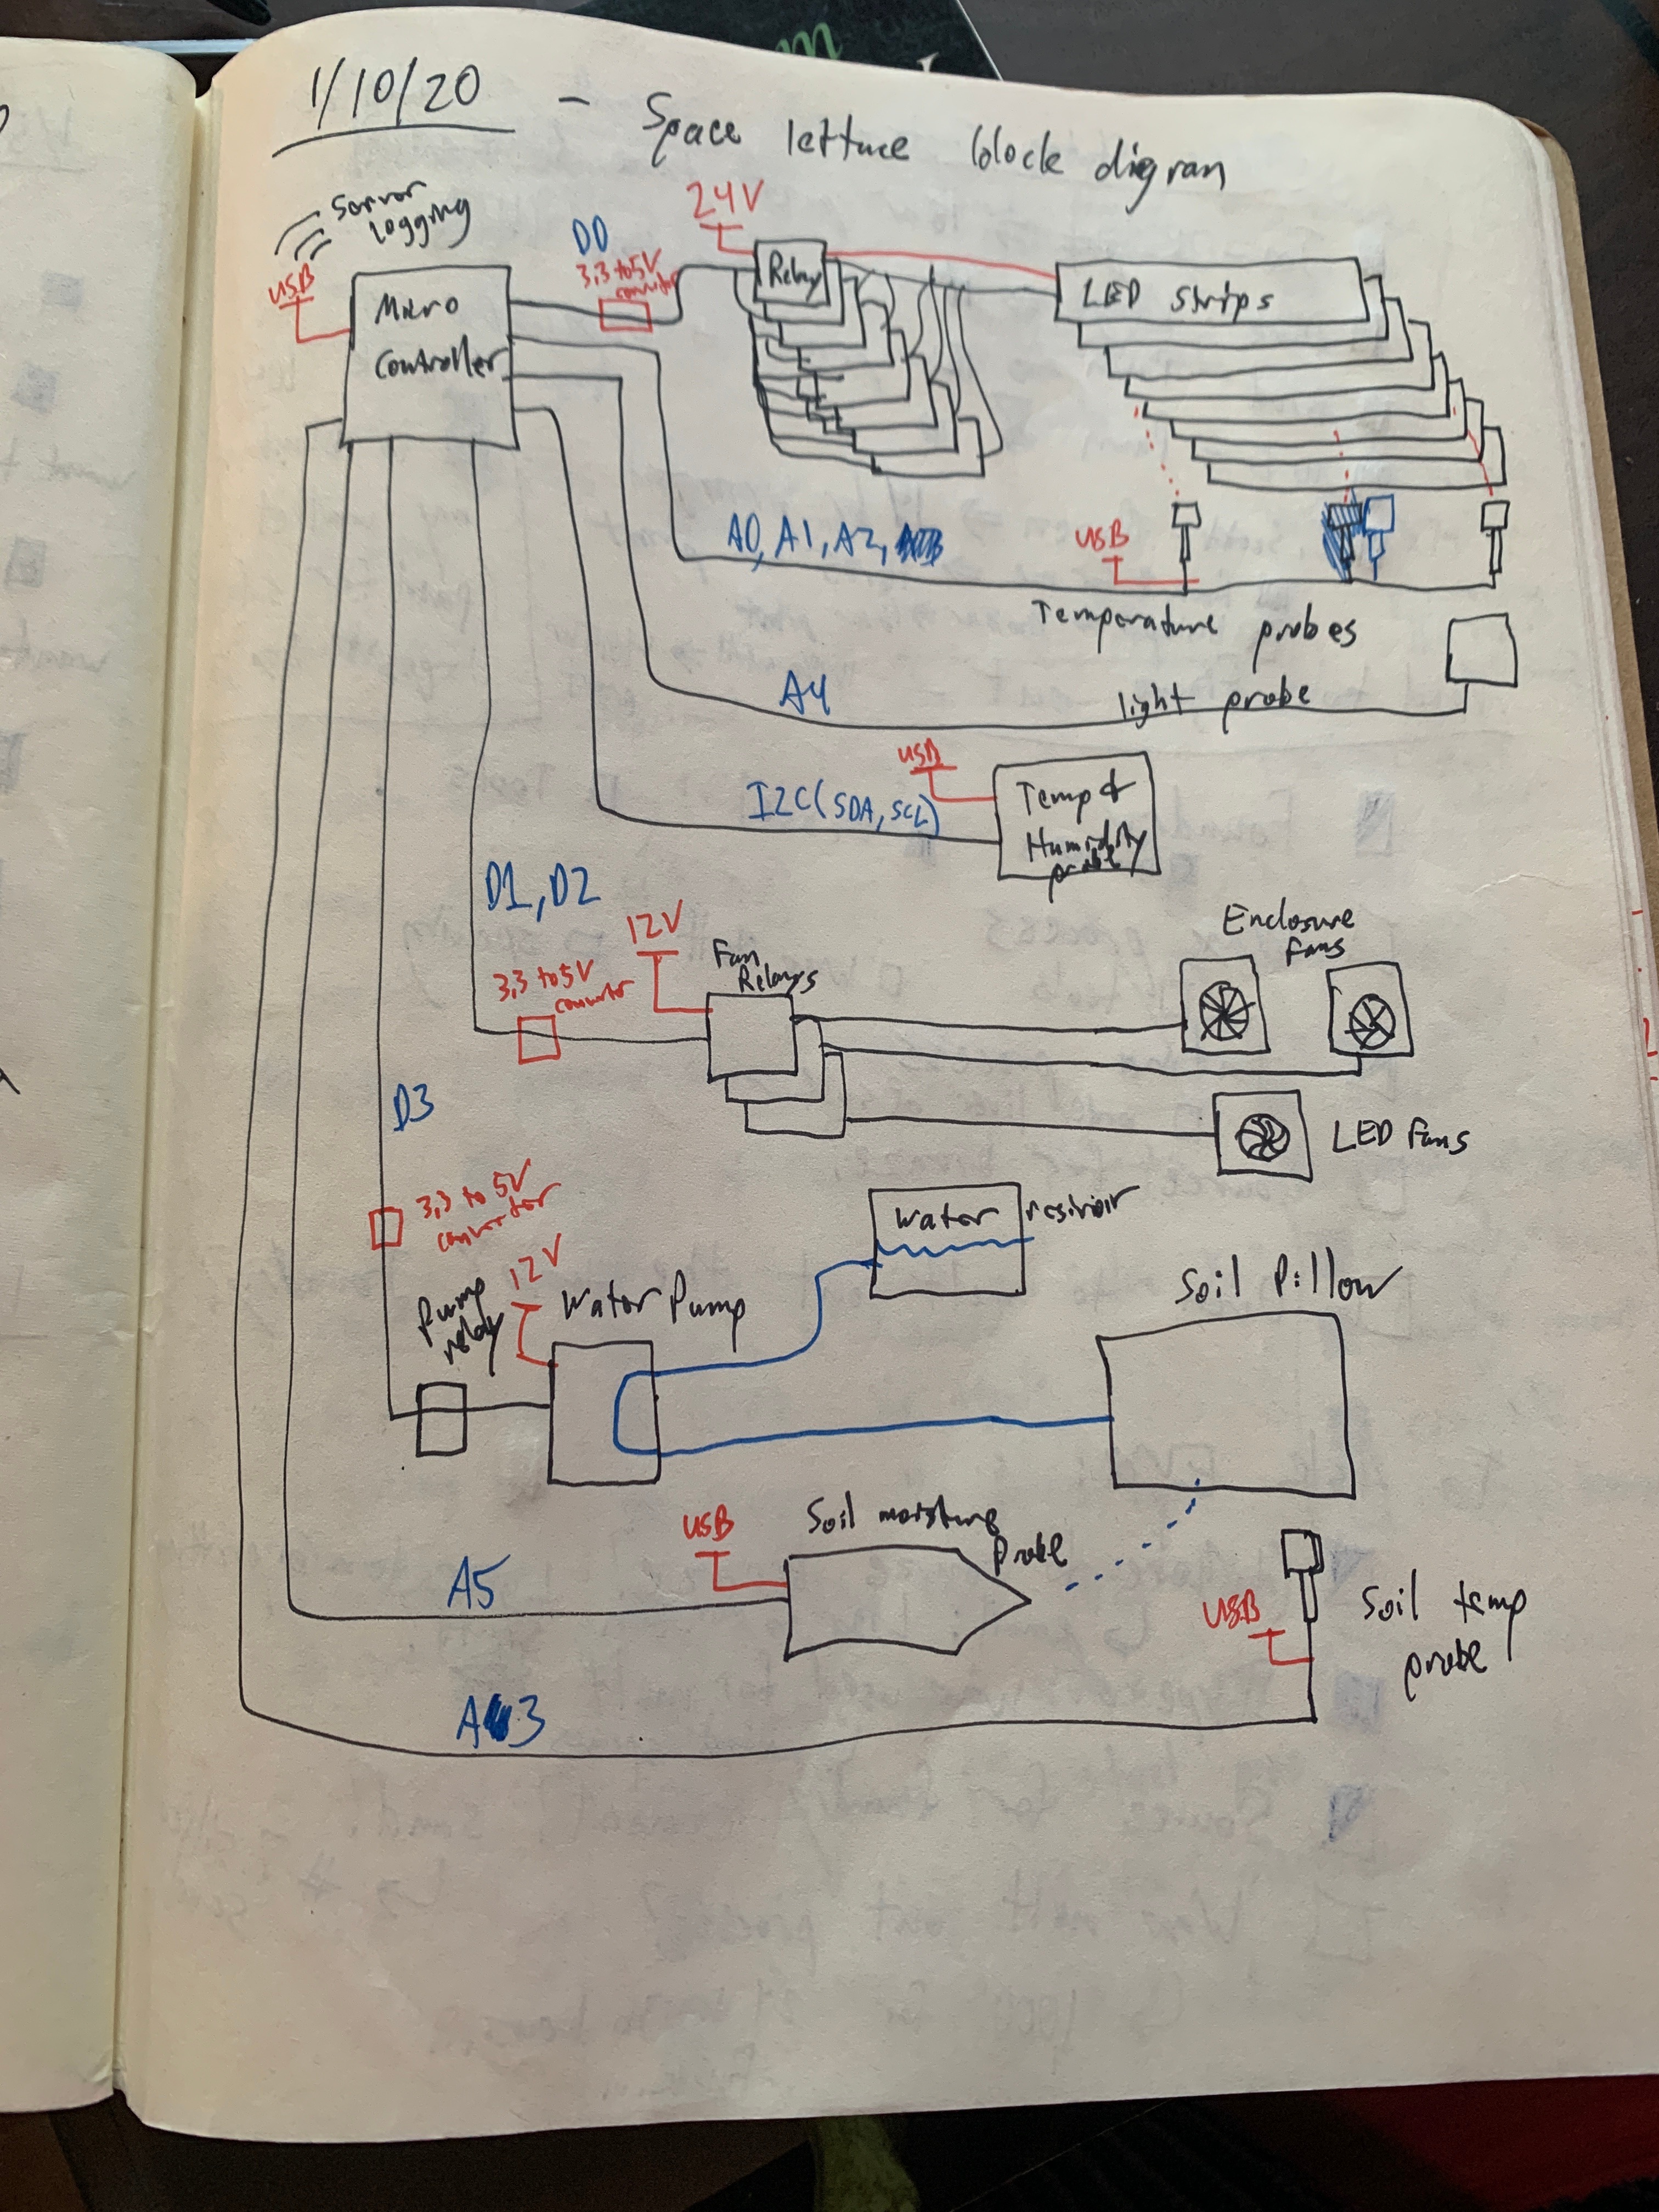 1/10/20 - Space lettuce block digram
Server
Logging
USB
Micro
Controller
D0
3.3 to 5V
convertor
24V
Relay
LED Strips
A0, A1, A2,
USB
Temperature probes
A4
light probe
USB
I2C(SDA, SCL)
Temp &
Humidity
probe
D1, D2
12V
3.3 to 5V
convertor
Fan
Relays
Enclosure
fans
D3
LED Fans
3.3 to 5V
convertor
12V
Pump
relay
Water Pump
Water resivoir
Soil Pillow
USB
Soil moisture
Probe
A5
USB
Soil temp
probe
A3